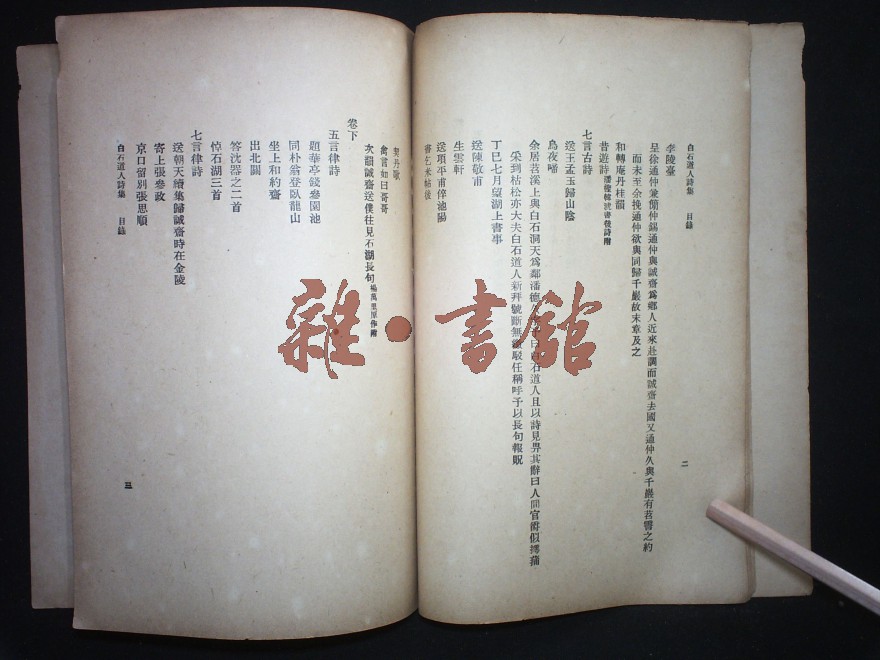 白石道人詩集 目錄
二
李陵臺
呈徐通仲兼簡仲錫通仲與誠齋為鄉人近來赴調而誠齋去國又通仲久與千巖有苕霅之約
而未至余挽通仲欲與同歸千巖故末章及之
和轉庵丹桂韻
昔遊詩潘檉韓淲書後詩附
七言古詩
送王孟玉歸山陰
烏夜嗁
余居苕溪上與白石洞天為鄰潘德久字予曰白石道人且以詩見畀其辭曰人間官爵似摴蒱
采到枯松亦大夫白石道人新拜號斷無繳駁任稱呼予以長句報貺
丁巳七月望湖上書事
送陳敬甫
生雲軒
送項平甫倅池陽
書乞米帖後
契丹歌
禽言如曰哥哥
次韻誠齋送僕往見石湖長句楊萬里原作附
卷下
五言律詩
題華亭錢參園池
同朴翁登臥龍山
坐上和約齋
出北關
答沈器之二首
悼石湖三首
七言律詩
送朝天續集歸誠齋時在金陵
寄上張參政
京口留別張思順
白石道人詩集 目錄
三
雜·書館